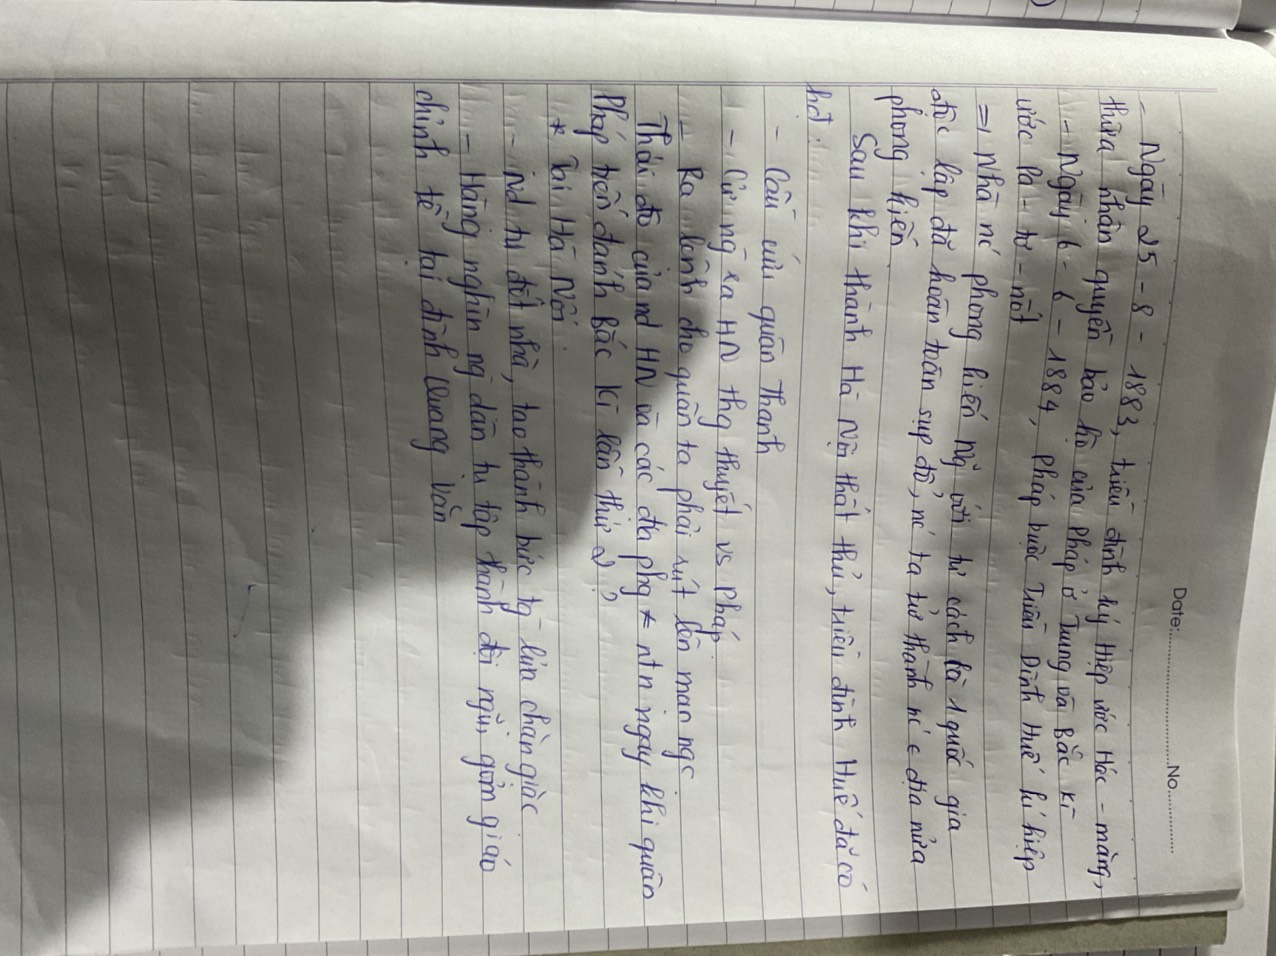 Date: No
- Ngày 25 - 8 - 1883, triều đình ký Hiệp ước Hác - măng,
thừa nhận quyền bảo hộ của Pháp ở Trung và Bắc Kì
- Ngày 6 - 6 - 1884, Pháp buộc Triều Đình Huế kí hiệp
ước Pa - tơ - nốt
=) Nhà nc phong kiến Ng với tư cách là 1 quốc gia
độc lập đã hoàn toàn sụp đổ, nc ta trở thành nc địa nửa
phong kiến
Sau khi thành Hà Nội thất thủ, triều đình Huế đã có
hđ:
- Cầu cứu quân Thanh
- Cử ng ra HN thg thuyết vs Pháp
- Ra lệnh cho quân ta phải rút lên mạn ngc
Thái độ của nd HN và các địa phg ntn ngay khi quân
Pháp tiến đánh Bắc Kì lần thứ 2?
* Tại Hà Nội
- Nd tự đốt nhà, tạo thành bức tg lửa chặn giặc
- Hàng nghìn ng dân tụ tập thành đội ngũ, gồm giáo
chỉnh tề tại đình Quang Văn